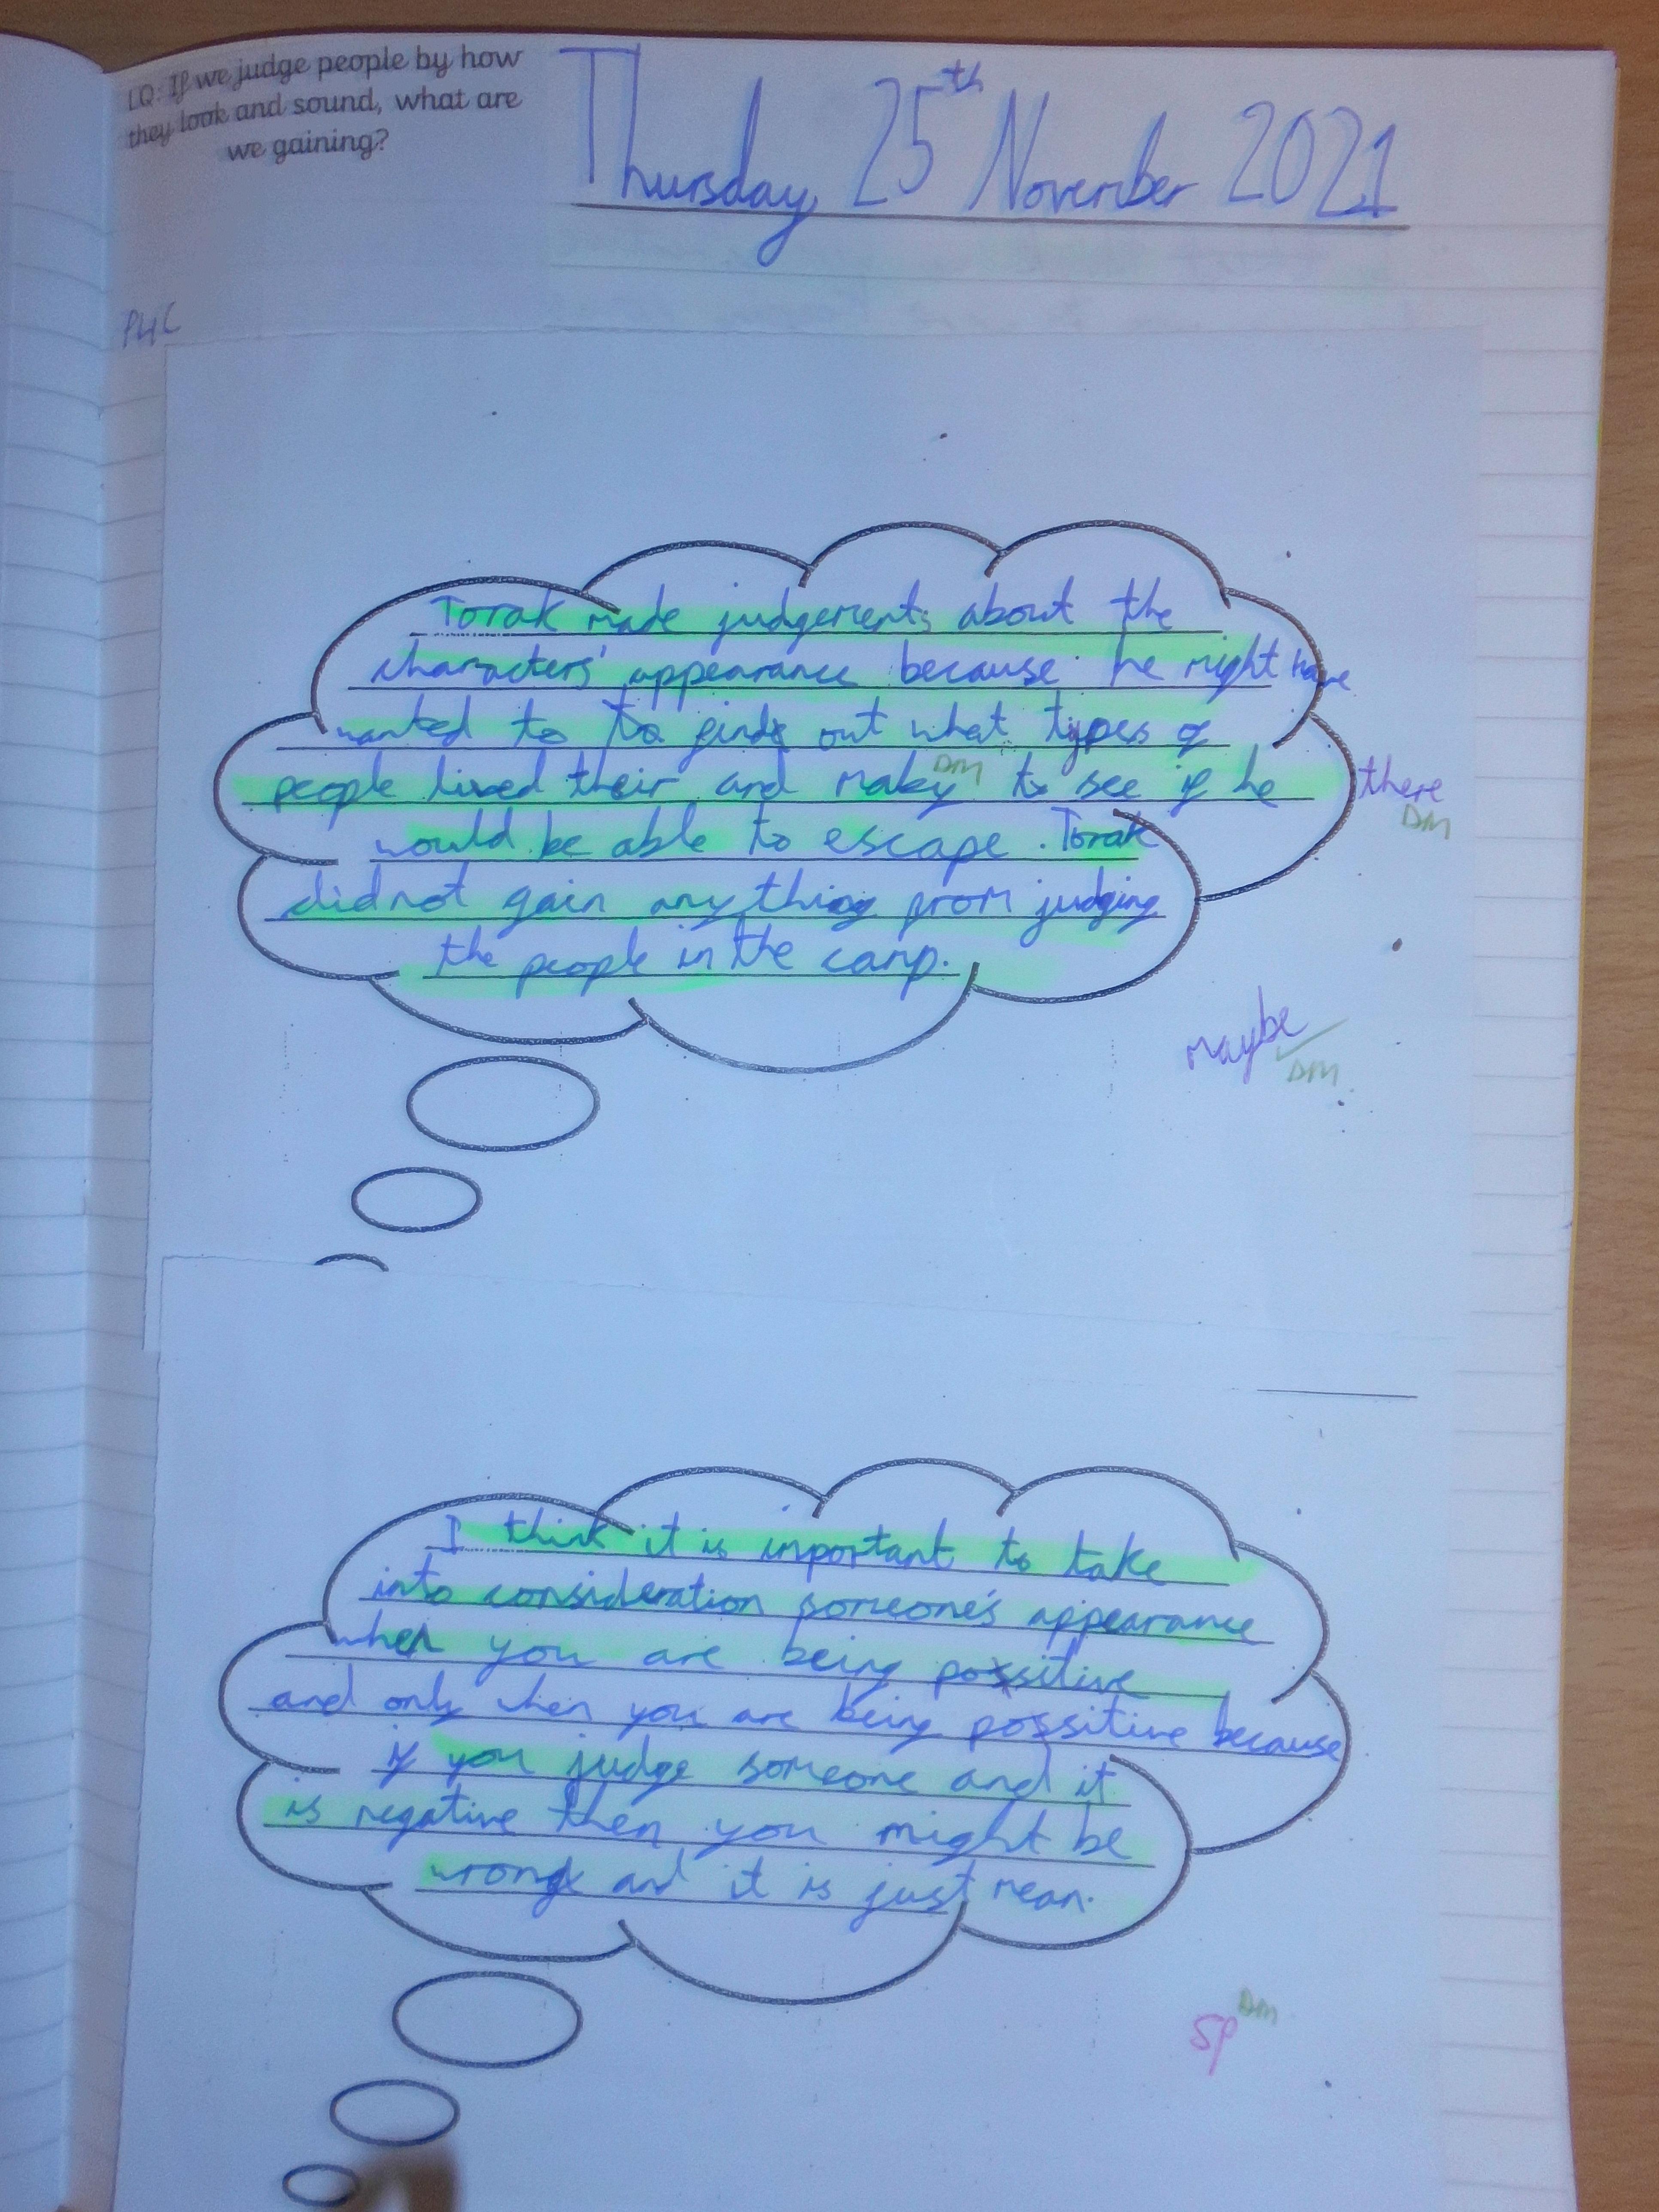 LQ: If we judge people by how
they look and sound, what are
we gaining?
Thursday, 25th November 2021
Torak made judgements about the
characters' appearance because he might have
wanted to to find out what types of
people lived their and maby DM to see if he
there
DM
would be able to escape. Torak
did not gain anything from judging
the people in the camp.
maybe
DM
I think it is important to take
into consideration someone's appearance
when you are being possitive
and only when you are being possitive because
if you judge someone and it
is negative then you might be
wrong and it is just mean.
DM
SP